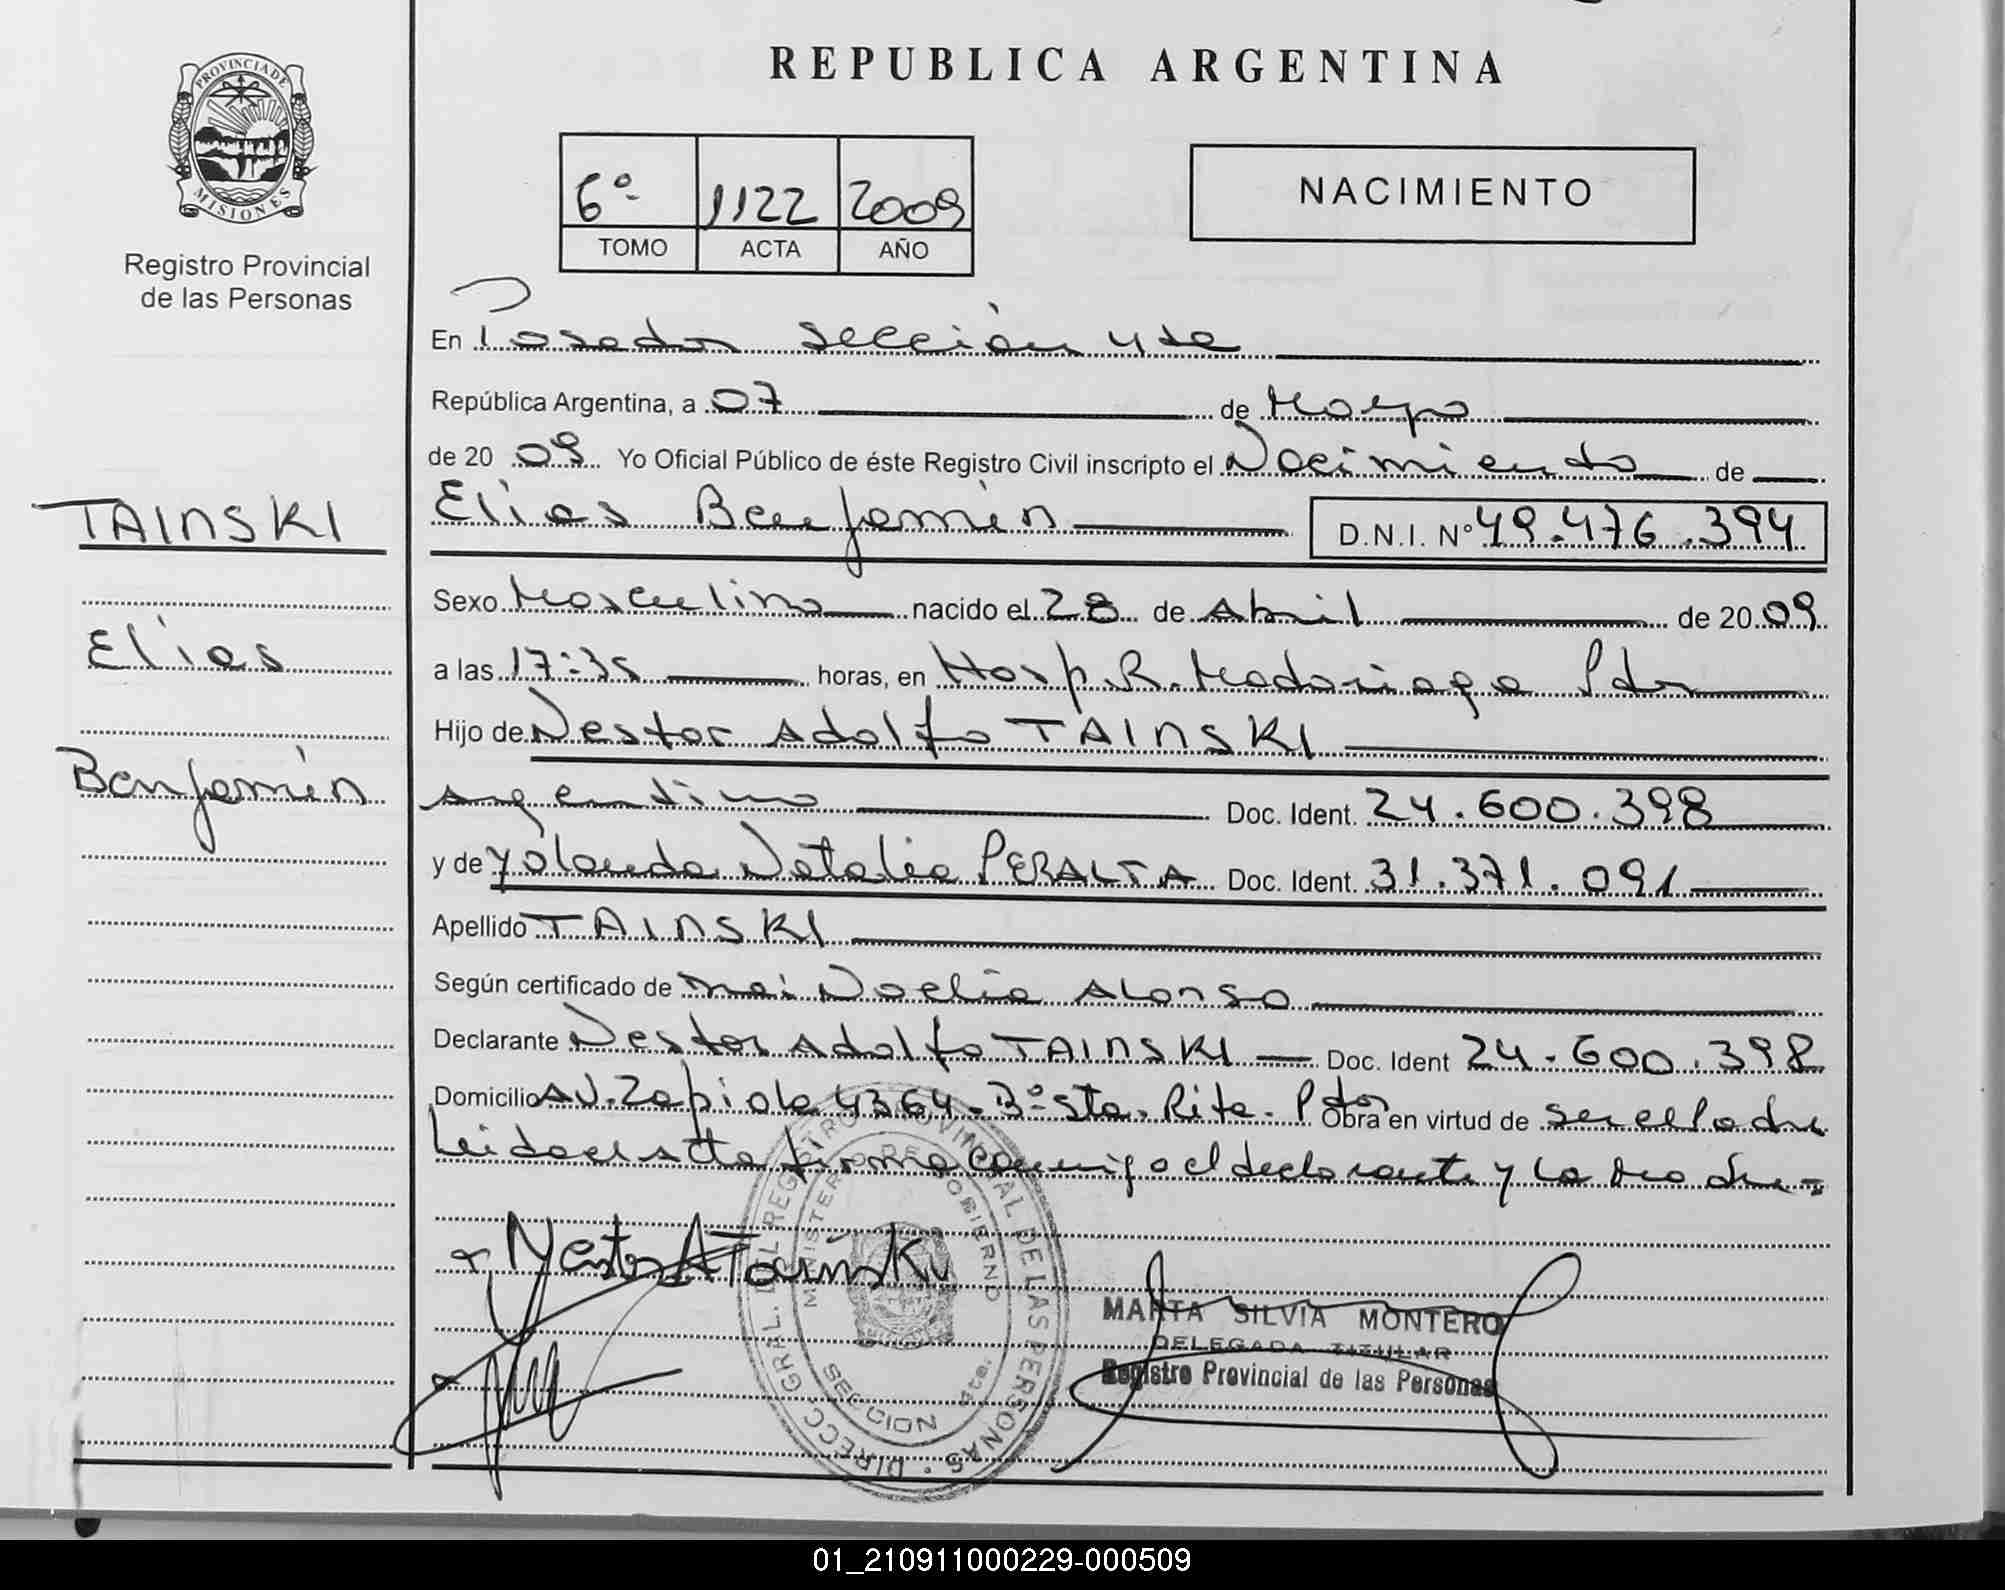 PROVINCIA DE
MISIONES
Registro Provincial
de las Personas
REPUBLICA ARGENTINA
6º 1122 2009
TOMO ACTA AÑO
NACIMIENTO
En Posadas sección 4ta
República Argentina, a 07 de Mayo
de 2009 Yo Oficial Público de éste Registro Civil inscripto el Nacimiento de
TAINSKI
Elias Benjamín D.N.I. Nº 49.476.394
Sexo Masculino nacido el 28 de Abril de 2009
Elias
a las 17:35 horas, en Hosp. R. Madariaga Pdas
Hijo de Nestor Adolfo TAINSKI
Benjamín
argentino Doc. Ident. 24.600.398
y de Yolanda Natalia PERALTA Doc. Ident. 31.371.091
Apellido TAINSKI
Según certificado de Noelia Alonso
Declarante Nestor Adolfo TAINSKI Doc. Ident 24.600.398
Domicilio AV. Zapiola 4364 - Bº Sta. Rita - Pdas Obra en virtud de ser el Padre
Leida el acta firma conmigo el declarante y la madre =
Nestor A Tainski
DIRECC. GRAL. DEL REGISTRO PROVINCIAL DE LAS PERSONAS
MINISTERIO DE GOBIERNO
SECCION 4ta.
MARTA SILVIA MONTERO
DELEGADA TITULAR
Registro Provincial de las Personas
01_210911000229-000509